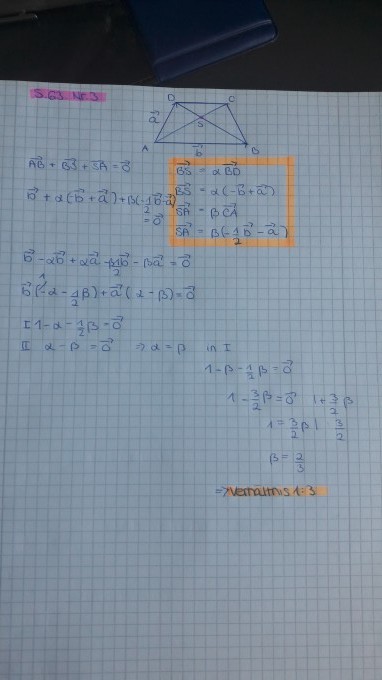 S. 63 Nr. 3
D C
a⃗ S
A b⃗ B
A⃗B + B⃗S + S⃗A = 0⃗
B⃗S = α B⃗D
B⃗S = α(-b⃗ + a⃗)
S⃗A = β C⃗A
S⃗A = β(-1/2 b⃗ - a⃗)
b⃗ + α(-b⃗ + a⃗) + β(-1/2 b⃗ - a⃗) = 0⃗
b⃗ - αb⃗ + αa⃗ - β1/2 b⃗ - βa⃗ = 0⃗
b⃗(1 - α - 1/2 β) + a⃗(α - β) = 0⃗
I 1 - α - 1/2 β = 0⃗
II α - β = 0⃗ ⇒ α = β in I
1 - β - 1/2 β = 0⃗
1 - 3/2 β = 0⃗ | + 3/2 β
1 = 3/2 β | 3/2
β = 2/3
⇒ Verhältnis 1:3